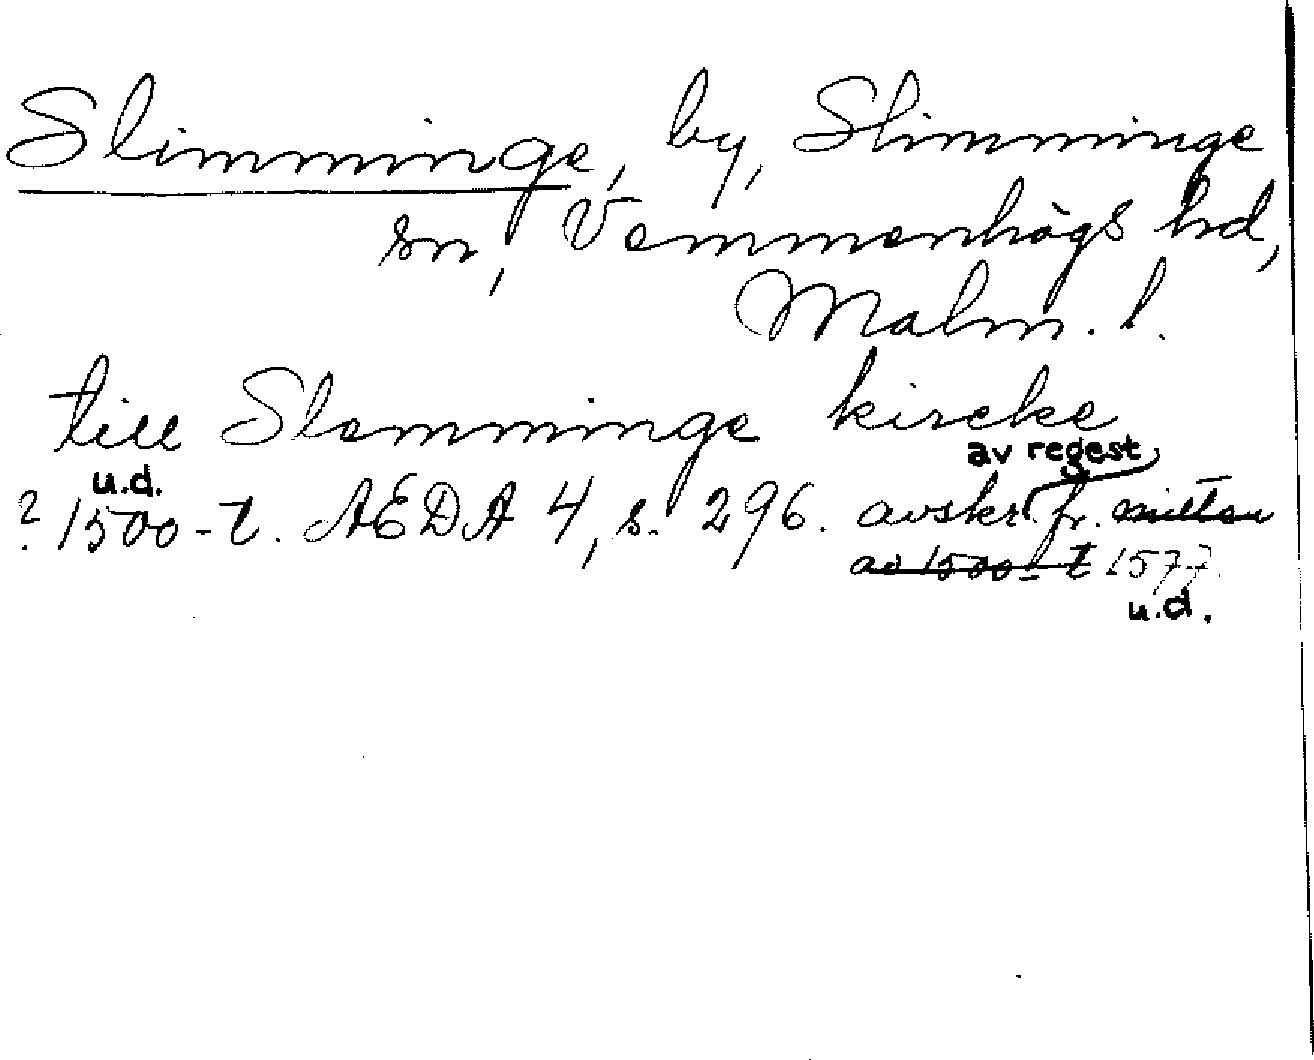 Slimminge, by, Slimminge
sn, Vemmenhögs hd,
Malm. l.
till Slemminge kircke
av regest
u.d.
? 1500-t. AEDA 4, s. 296. avskr. fr. mitten
av 1500-t 1577.
u.d.